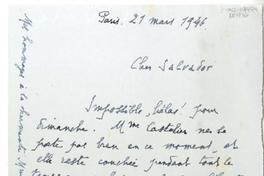 Paris, 21 mars 1946
Cher Salvador
Impossible, hélas! pour
dimanche. Mme Castelier ne se
porte pas bien en ce moment, et
elle reste couchée pendant tout le
Mes hommages à la charmante